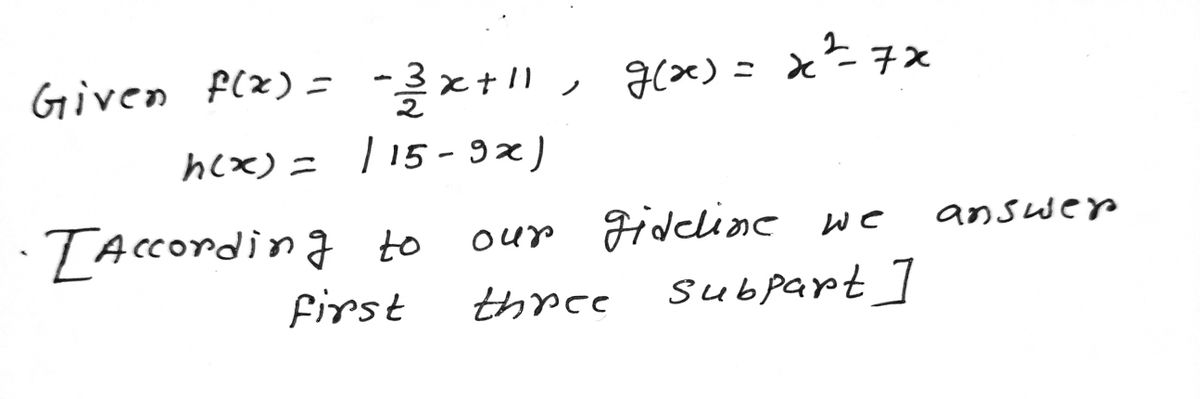 Given f(x) = -3/2 x + 11 , g(x) = x² - 7x
h(x) = |15 - 9x|
[According to our gideline we answer
first three subpart]